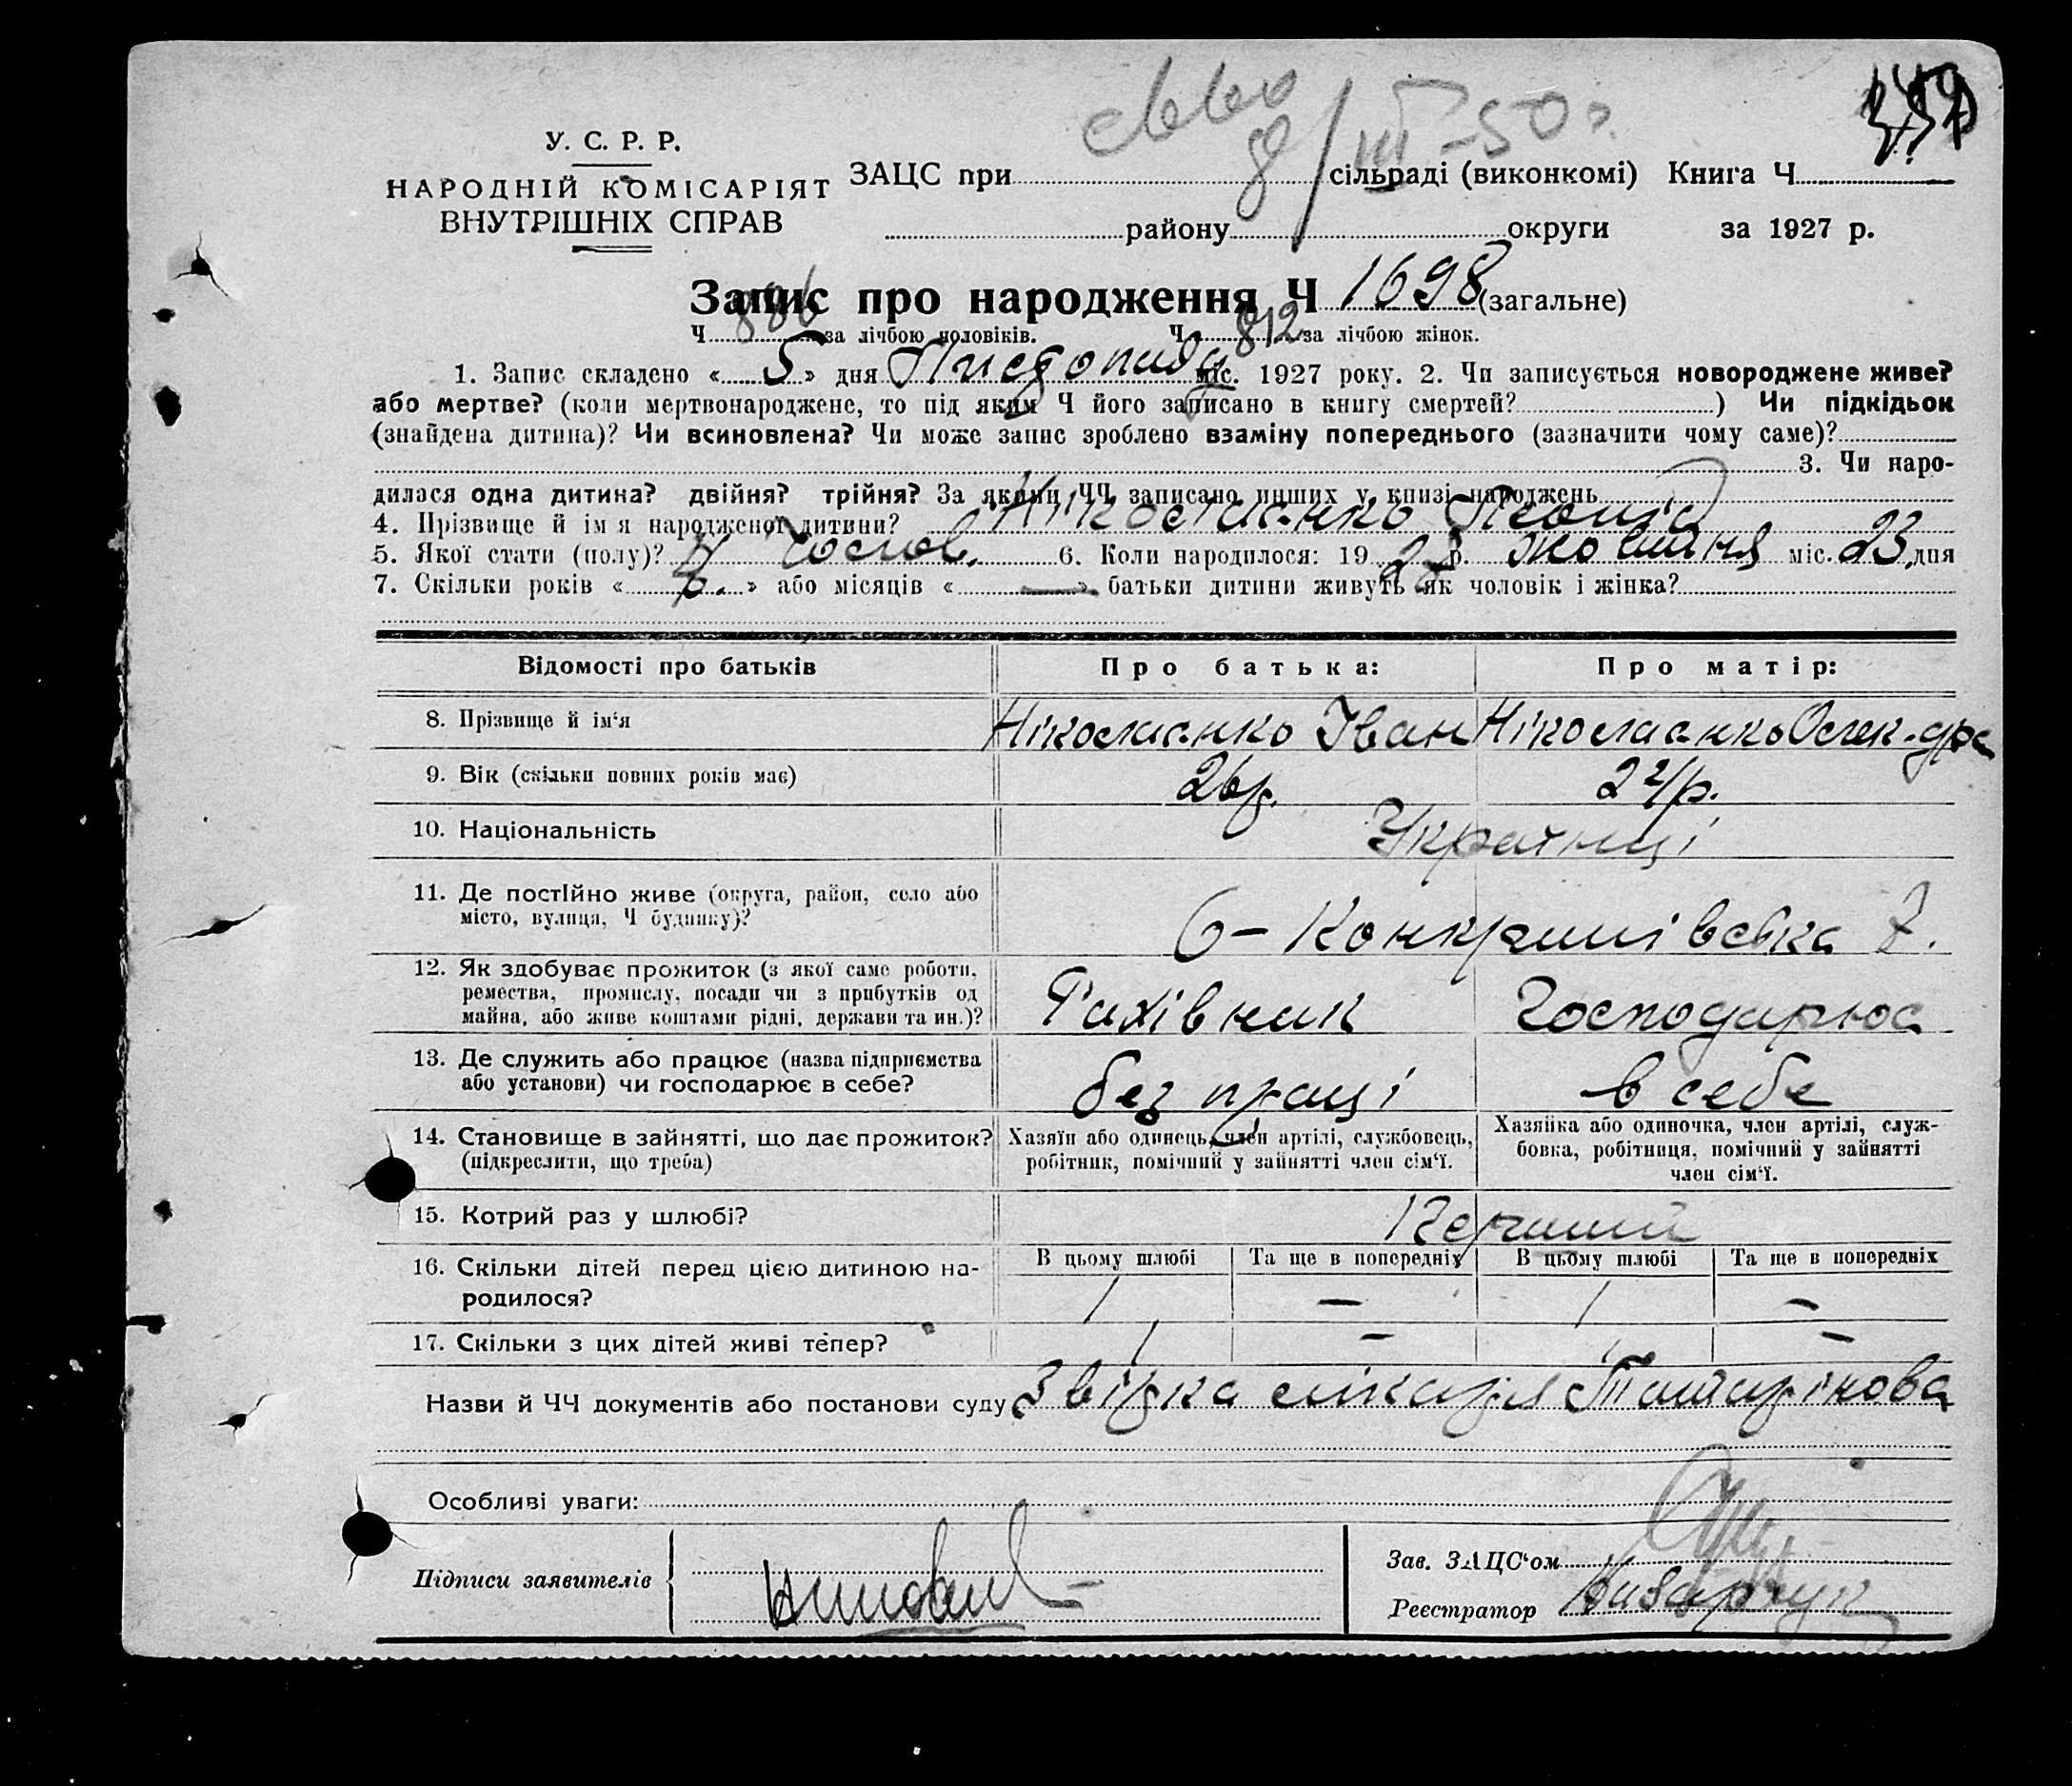 8/III-50 г.
У. С. Р. Р.
НАРОДНІЙ КОМІСАРІЯТ
ВНУТРІШНІХ СПРАВ
ЗАЦС при сільраді (виконкомі) Книга Ч
району округи за 1927 р.
Запис про народження Ч 1698 (загальне)
Ч 886 за лічбою чоловіків. Ч 812 за лічбою жінок.
1. Запис складено « 5 » дня Листопада міс. 1927 року. 2. Чи записується новороджене живе?
або мертве? (коли мертвонароджене, то під яким Ч його записано в книгу смертей? ) Чи підкідьок
(знайдена дитина)? Чи всиновлена? Чи може запис зроблено взаміну попереднього (зазначити чому саме)?
3. Чи наро-
дилася одна дитина? двійня? трійня? За якими ЧЧ записано инших у книзі народжень
4. Прізвище й ім я народженої дитини? Ніколаєнко Леонід
5. Якої стати (полу)? Чолов. 6. Коли народилося: 19 р. жовтня міс. 23 дня
7. Скільки років « » або місяців « — » батьки дитини живуть як чоловік і жінка?
Відомості про батьків Про батька: Про матір:
8. Прізвище й ім‘я Ніколаєнко Іван Ніколаєнко Олек-дра
9. Вік (скільки повних років має) 26 р. 24 р.
10. Національність Українці
11. Де постійно живе (округа, район, село або
місто, вулиця, Ч будинку)? 7.
12. Як здобуває прожиток (з якої саме роботи,
ремества, промислу, посади чи з прибутків од
майна, або живе коштами рідні, держави та ин.)? Рахівник Господарює
13. Де служить або працює (назва підприємства
або установи) чи господарює в себе? без праці в себе
14. Становище в зайнятті, що дає прожиток?
(підкреслити, що треба)
Хазяїн або одинець, член артілі, службовець,
робітник, помічний у зайнятті член сім‘ї.
Хазяйка або одиночка, член артілі, служ-
бовка, робітниця, помічний у зайнятті
член сім‘ї.
15. Котрий раз у шлюбі? Перший
16. Скільки дітей перед цією дитиною на-
родилося?
В цьому шлюбі Та ще в попередніх В цьому шлюбі Та ще в попередніх
1 — 1 —
17. Скільки з цих дітей живі тепер? 1 — 1 —
Назви й ЧЧ документів або постанови суду Звідка лікаря Татарінова
Особливі уваги:
Підписи заявителів
Зав. ЗАЦС‘ом
Реєстратор